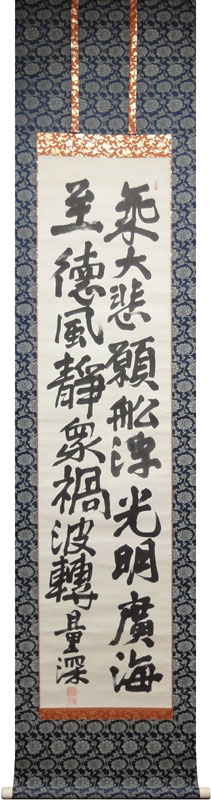 乘大悲願船浮光明廣海
至德風靜衆禍波轉量深